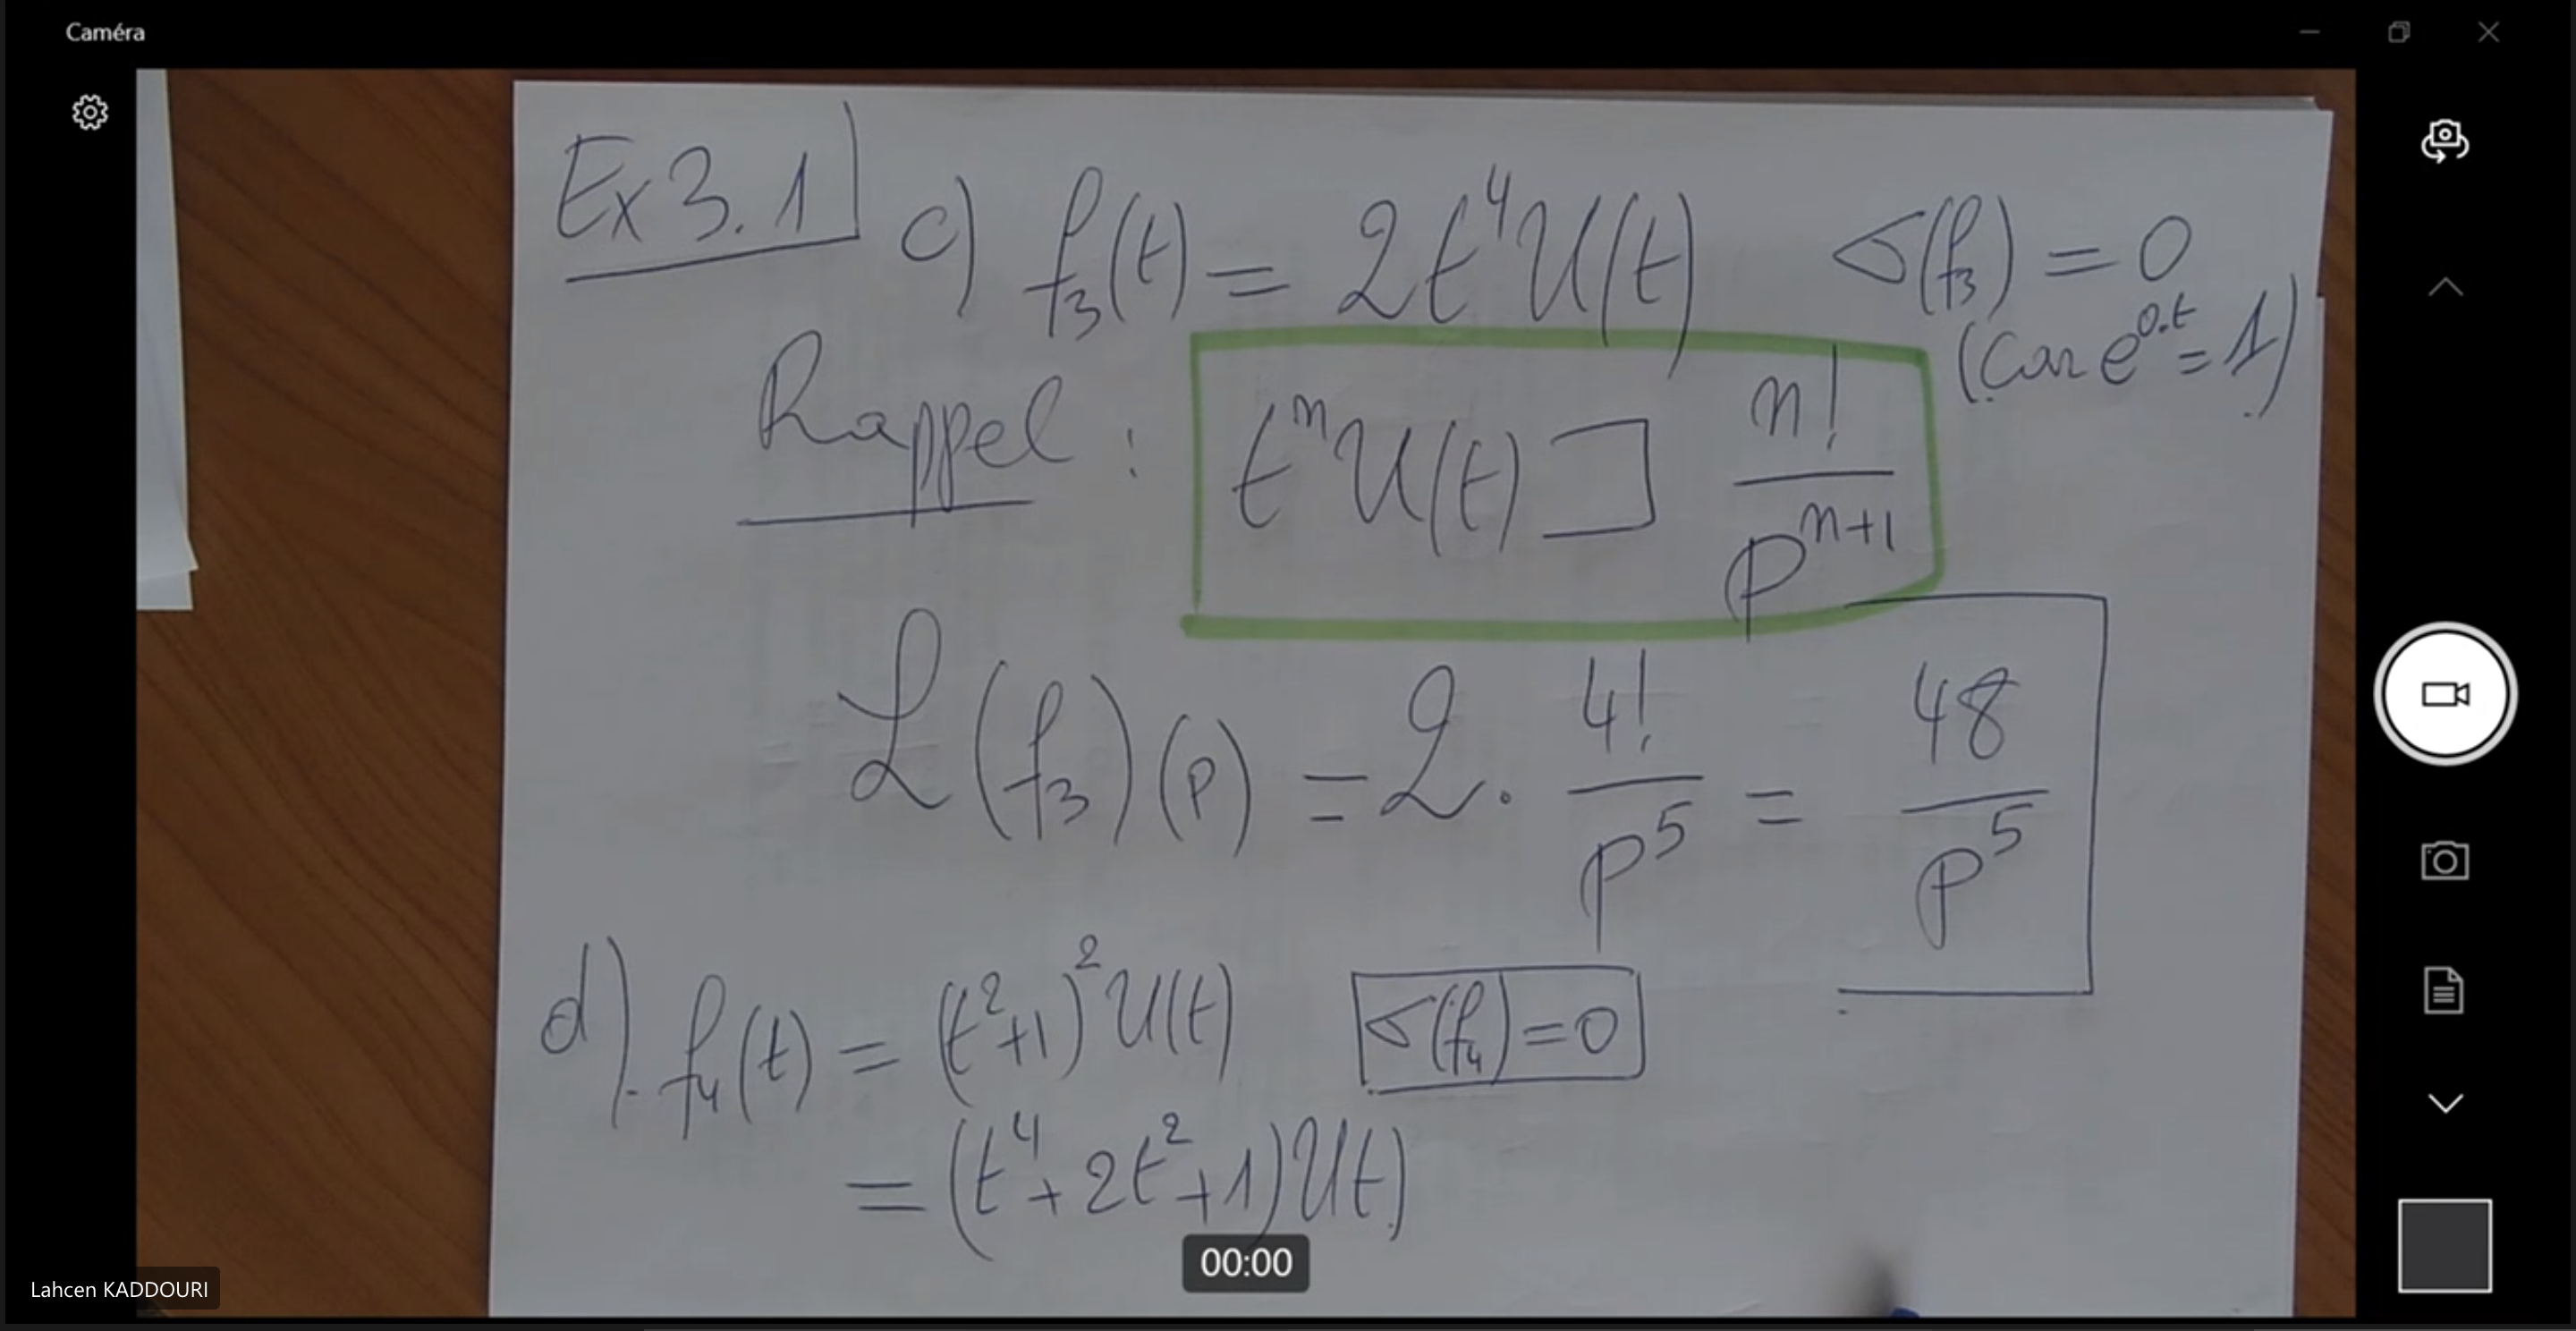 Caméra
Ex 3.1 c) f₃(t) = 2t⁴U(t) σ(f₃) = 0
(car e^{0.t} = 1)
Rappel : t^n U(t) ⊐ n!/p^{n+1}
L(f₃)(p) = 2. 4!/p⁵ = 48/p⁵
d). f₄(t) = (t²+1)²U(t) σ(f₄) = 0
= (t⁴+2t²+1)U(t)
00:00
Lahcen KADDOURI